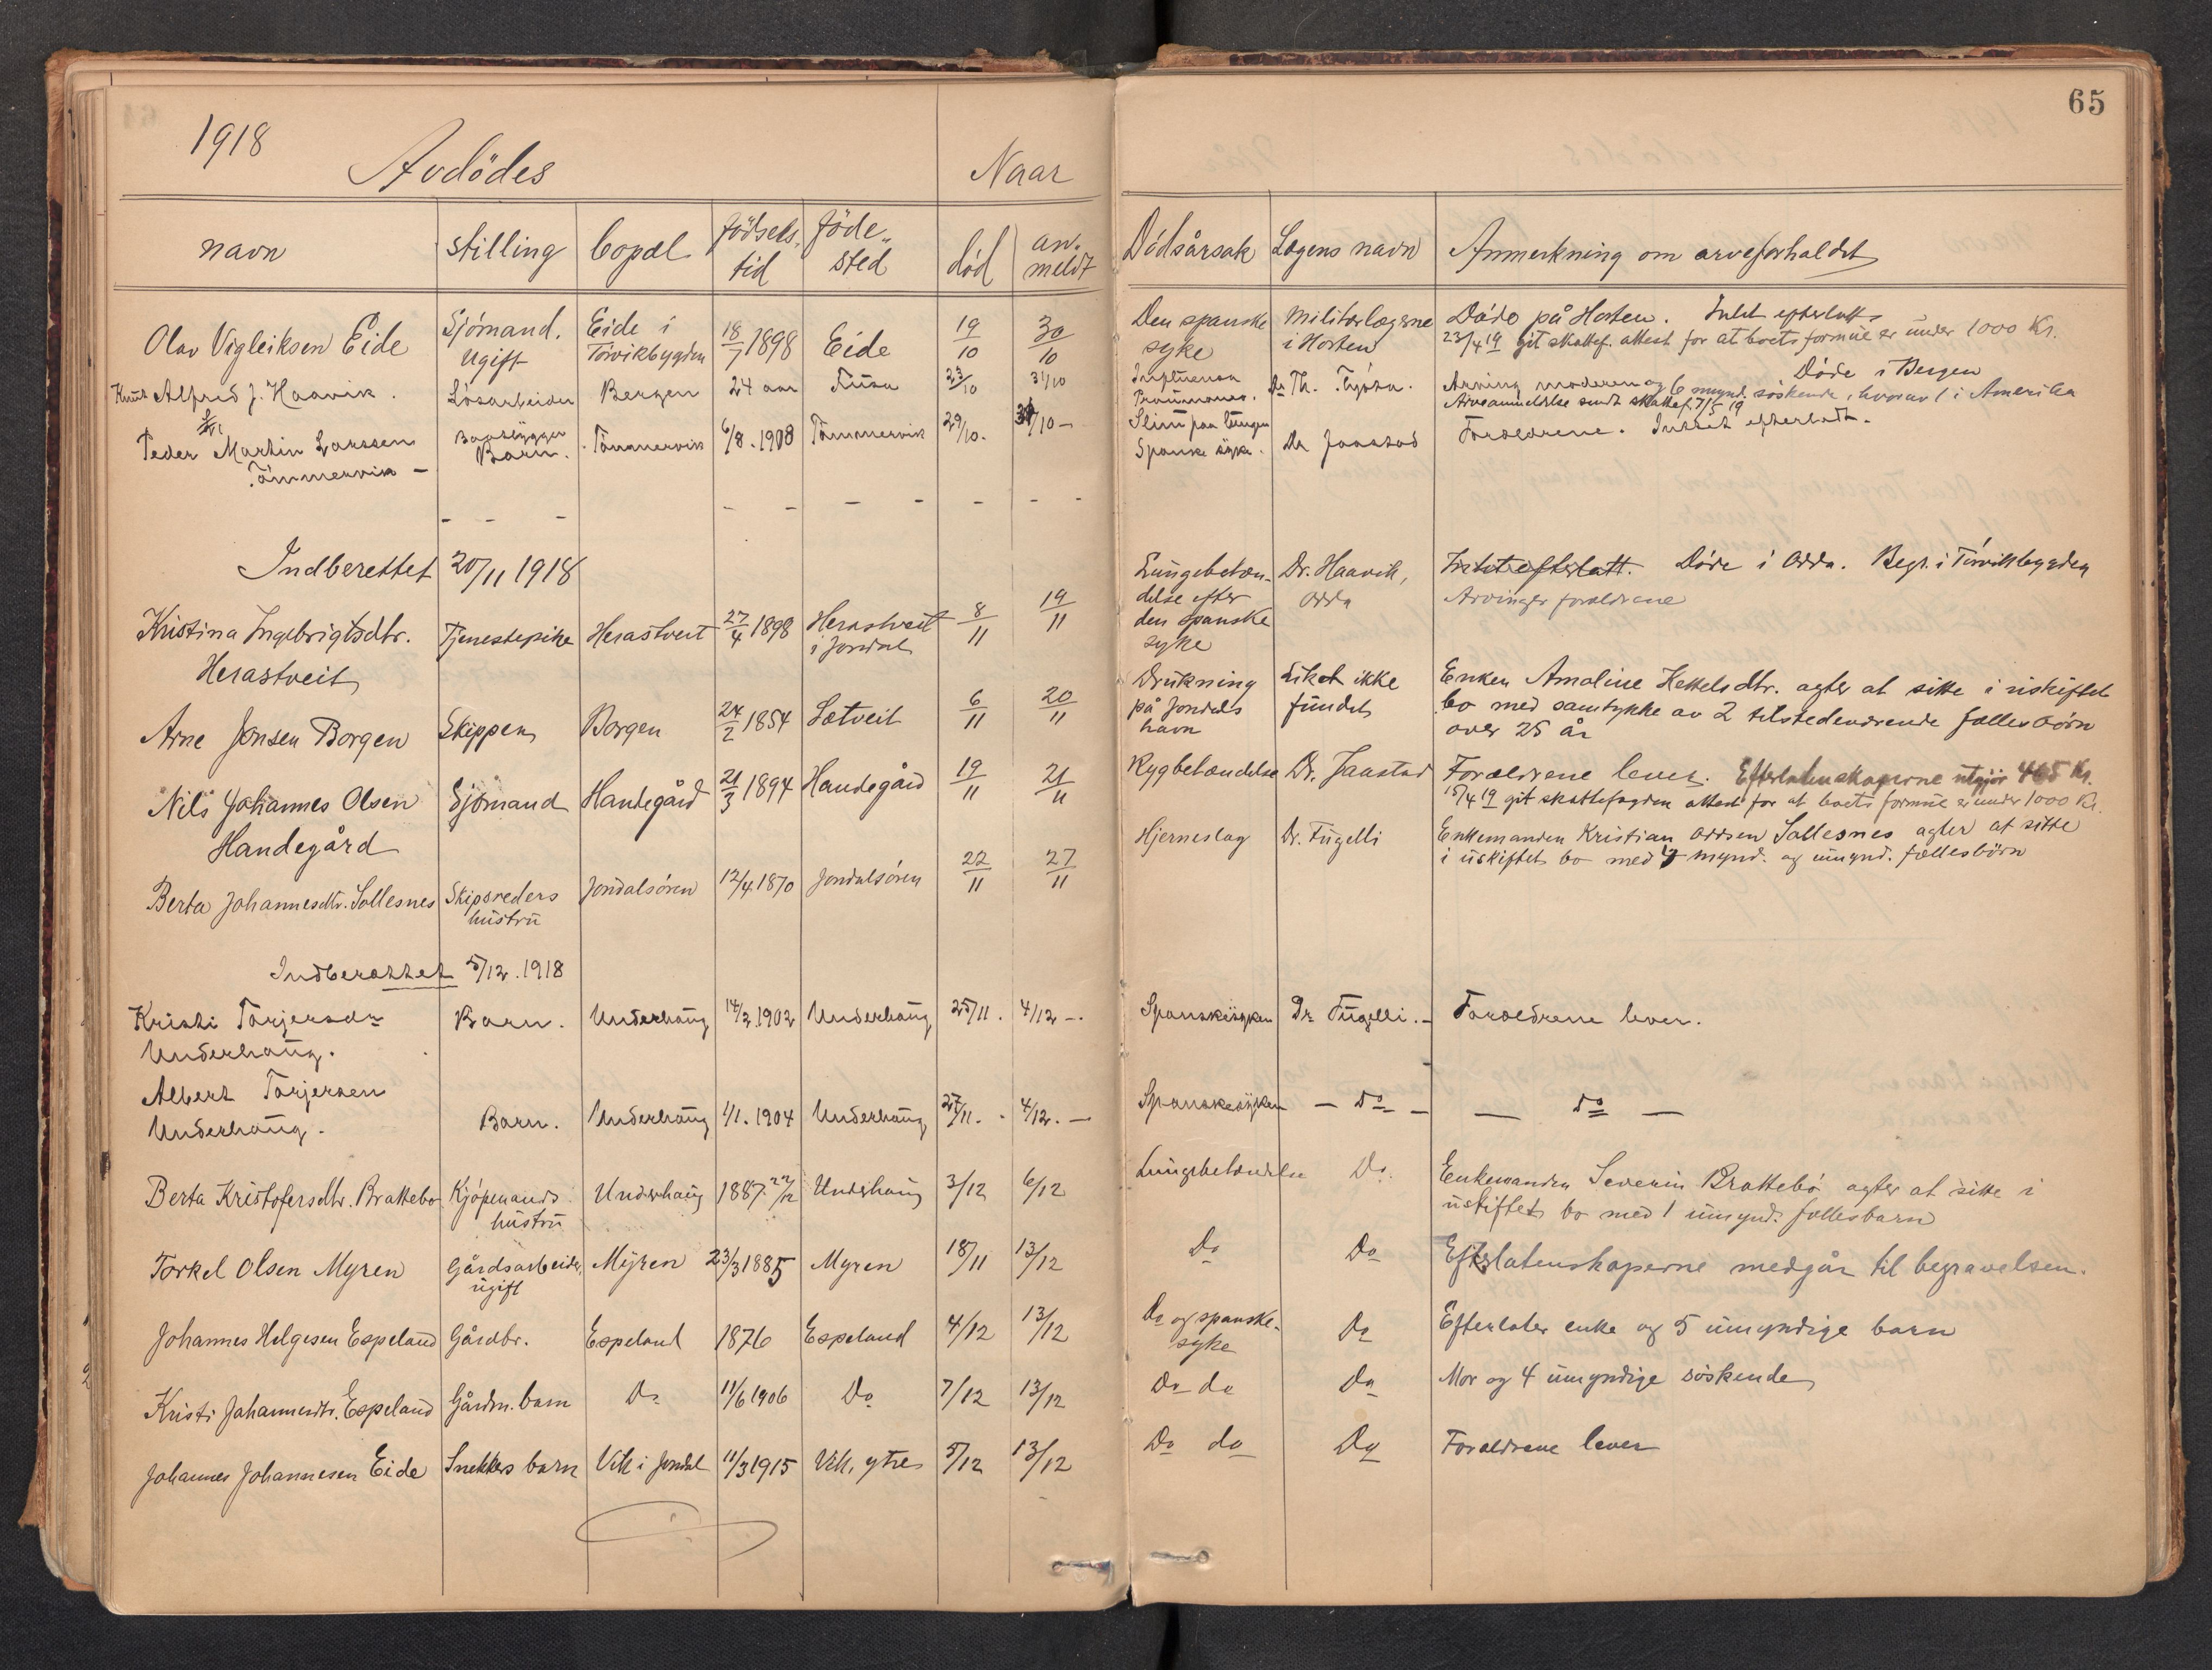 65
1918
Avdödes
Naar
navn
stilling
bopæl
födsels-
tid
föde-
sted
död
an-
meldt
Dödsårsak
Lægens navn
Anmerkning om arveforholdet
Olav Vigleiksen Eide
Sjömand.
ugift
Eide i
Törvikbygden
18/7 1898
Eide
19/10
30/10
Den spanske
syke
Militærlægerne
i Horten
Döde på Horten. Intet efterlatt
23/4 19 git skattef. attest for at boets formue er under 1000 Kr.
Knut Alfred J. Haavik.
Lösarbeider
Bergen
24 aar
Fusa
23/10
31/10
Influensa
Dr Th.
Döde i Bergen
Arving moderen og 6 mynd. söskende, hvorav 1 i Amerika
Arveanmeldelse sendt skattef. 7/5 19
Peder Martin Larssen
Tömmervik -
Baatbygger
Barn.
Tömmervik
6/8. 1908
Tömmervik
29/10.
31/10 -
Slim paa lungen
Spanske syke.
Dr Jaastad
Forældrene. Intet efterladt.
Indberettet 20/11 1918
Kristina Ingebrigtsdtr.
Herastveit
Tjenestepike
Herastveit
27/4 1898
Herastveit
i Jondal
8/11
19/11
Lungebetæn-
delse efter
den spanske
syke
Dr. Haavik,
Odda
Intet efterlatt. Döde i Odda. Begr. i Törvikbygden
Arvinger forældrene
Arne Jonsen Borgen
Skipper
Borgen
24/2 1854
Sætveit
6/11
20/11
Drukning
på Jondals
havn
Liket ikke
fundet
Enken Amaline Hettelsdtr. agter at sitte i uskiftet
bo med samtykke av 2 tilstedeværende fællesbörn
over 25 år
Nils Johannes Olsen
Handegård
Sjömand
Handegård
21/3 1894
Handegård
19/11
21/11
Rygbetændelse
Dr. Jaastad
Forældrene lever. Efterlatenskaperne utgjör 465 Kr.
15/4 19 git skattefogden attest for at boets formue er under 1000 Kr.
Berta Johannesdtr. Sollesnes
Skipsreders
hustru
Jondalsören
12/4 1870
Jondalsören
22/11
27/11
Hjerneslag
Dr. Fugelli
Enkemanden Kristian Oddsen Sollesnes agter at sitte
i uskiftet bo med 7 mynd. og umynd. fællesbörn
Indberettet 5/12. 1918
Kristi Torjersdr
Underhaug.
Barn.
Underhaug
14/2 1902
Underhaug
25/11.
4/12 -.
Spanskesyken
Dr Fugelli. -
Forældrene lever.
Albert Torjersen
Underhaug.
Barn.
Underhaug
1/1. 1904
Underhaug
27/11.
4/12. -
Spanskesyken
- Do -
- do -
Berta Kristofersdtr. Brattebo
Kjöpmands
hustru
Underhaug
1887. 22/12
Underhaug
3/12
6/12
Lungebetændelse
Do.
Enkemanden Severin Brattebö agter at sitte i
uskiftet bo med 1 umynd. fællesbarn
Torkel Olsen Myren
Gårdsarbeider,
ugift
Myren
23/3 1885
Myren
18/11
13/12
Do
Do
Efterlatenskaperne medgår til begravelsen.
Johannes Helgesen Espeland
Gårdbr.
Espeland
1876
Espeland
4/12
13/12
Do og spanske-
syke
Do
Efterlater enke og 5 umyndige barn
Kristi Johannesdtr. Espeland
Gårdm. barn
Do
11/6 1906
Do
7/12
13/12
Do do
Do
Mor og 4 umyndige söskende
Johannes Johannesen Eide
Snekkers barn
Vik i Jondal
11/3 1915
Vik, ytre
5/12
13/12
Do do
Do
Forældrene lever